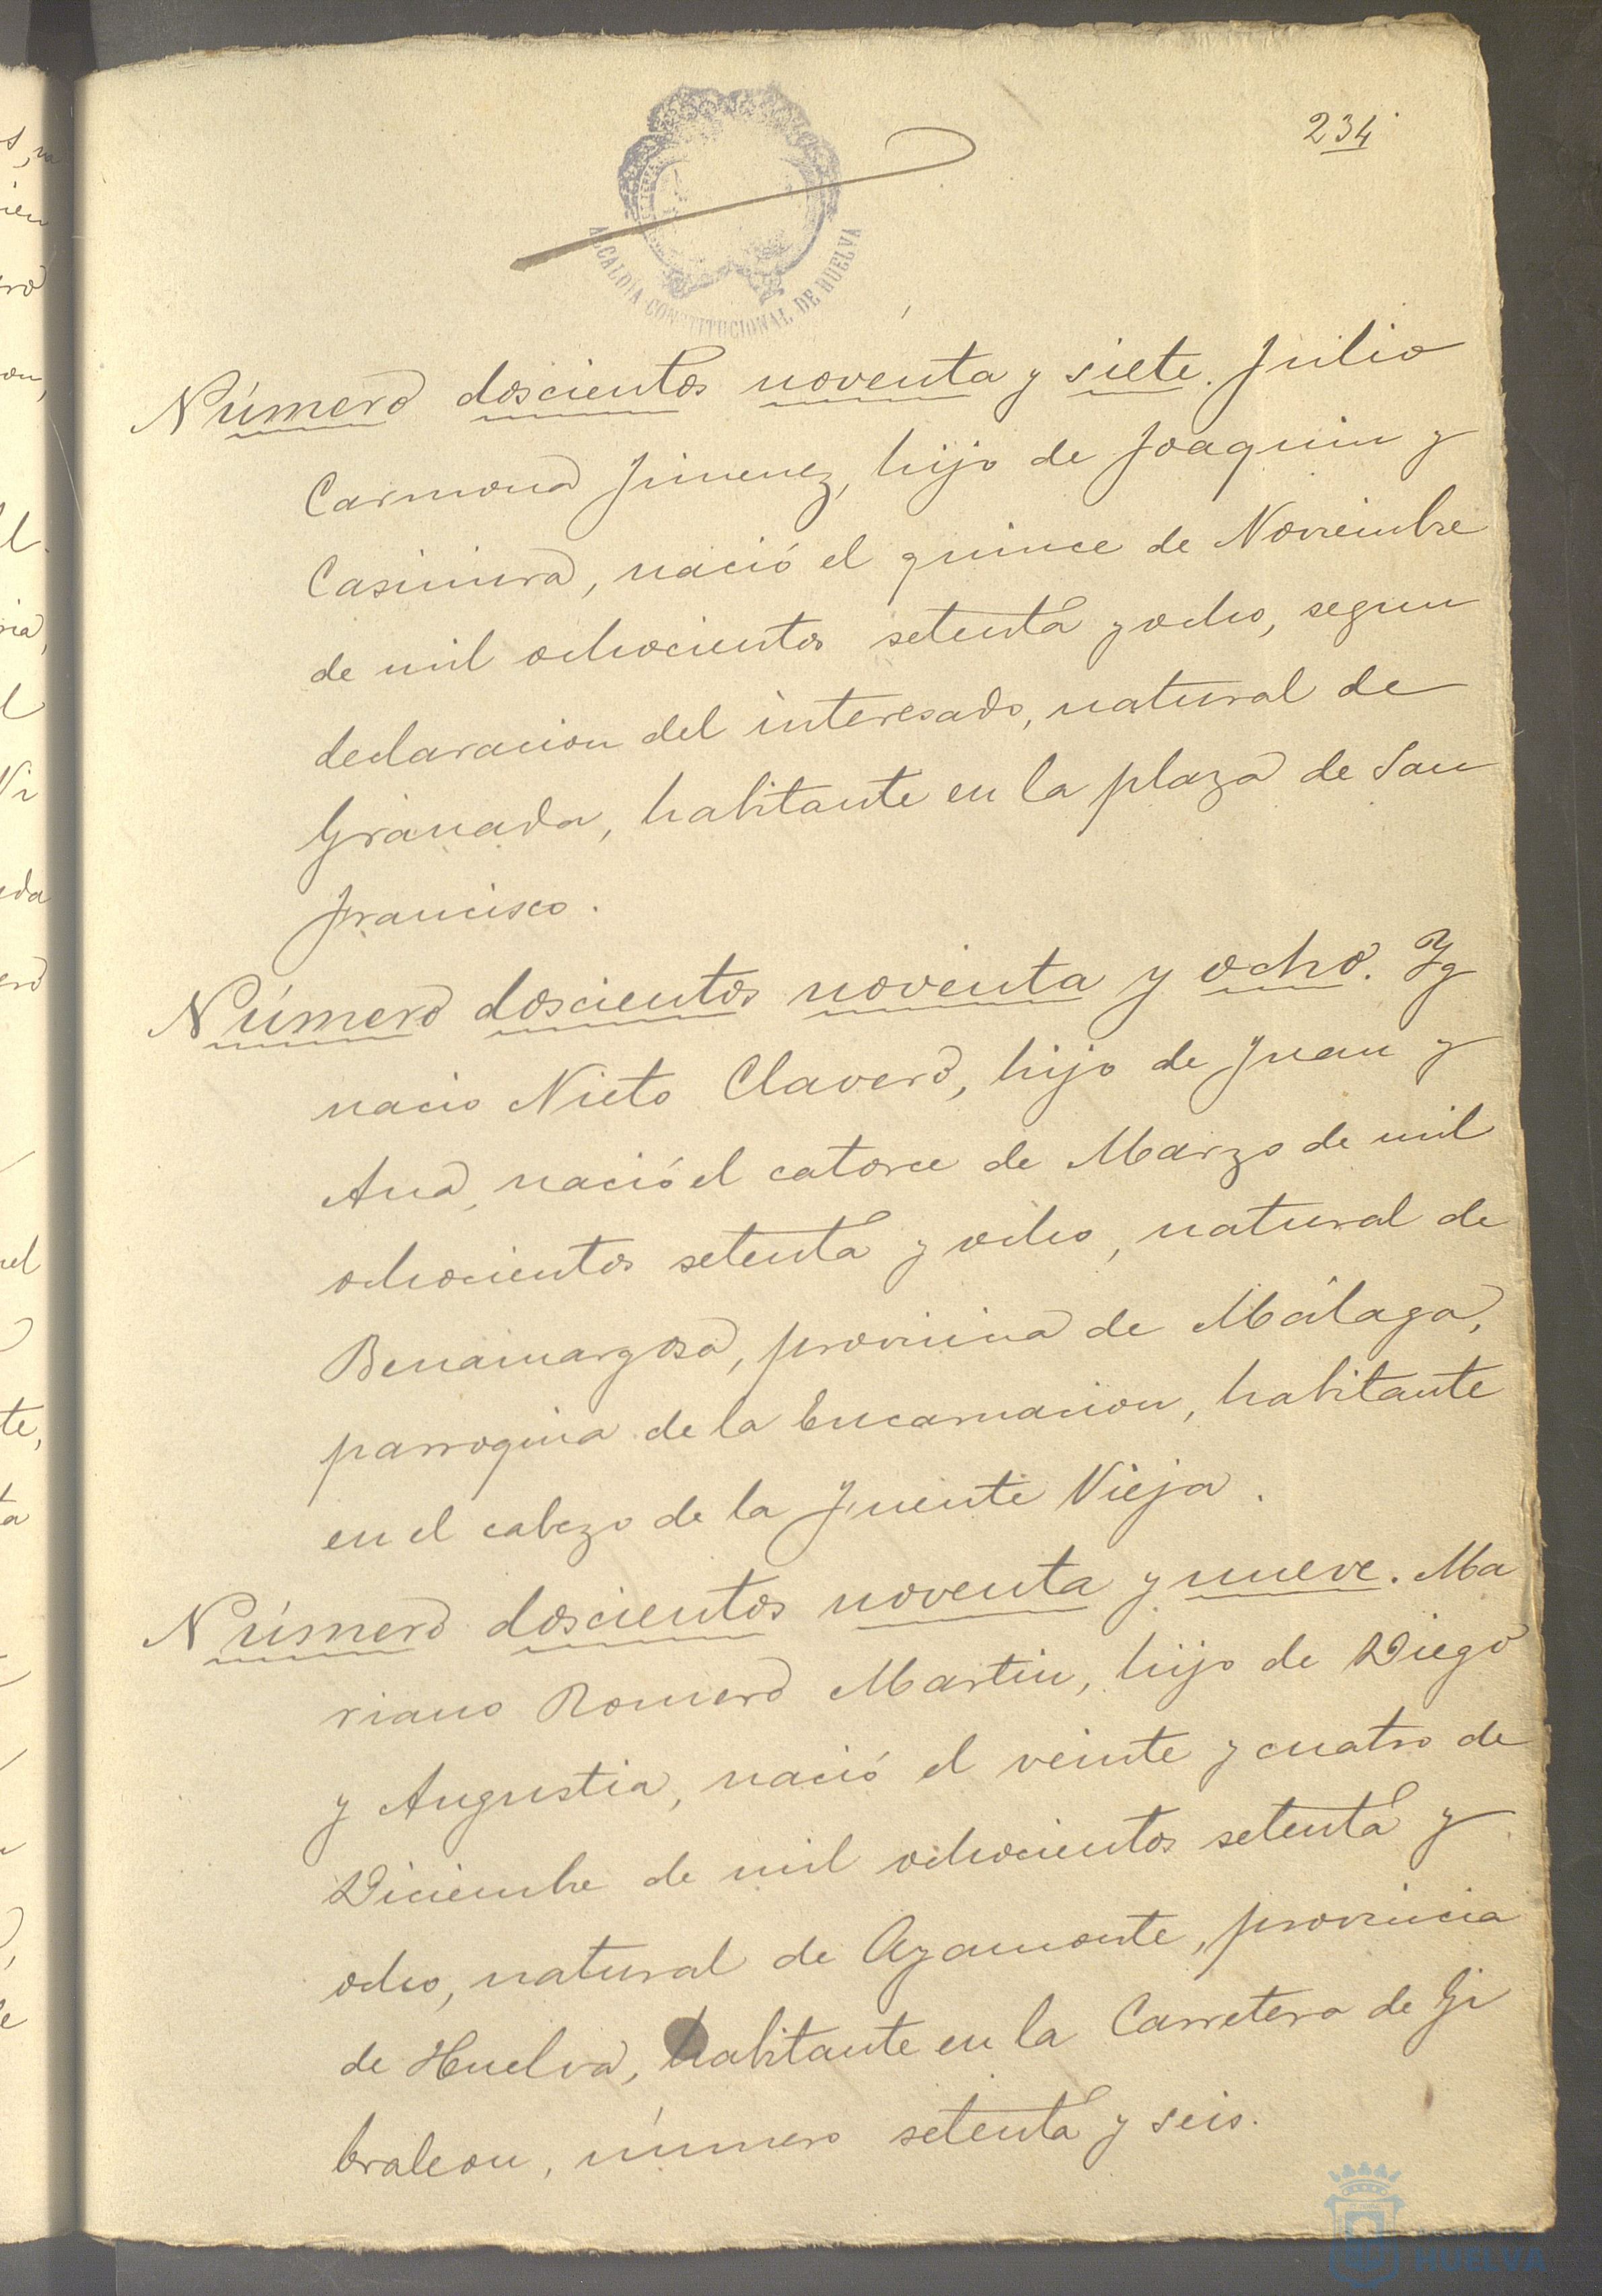 234
ALCALDIA CONSTITUCIONAL DE HUELVA
Número doscientos noventa y siete. Julio
Carmona Jimenez, hijo de Joaquin y
Casimira, nació el quince de Noviembre
de mil ochocientos setenta y ocho, segun
declaracion del interesado, natural de
Granada, habitante en la plaza de San
Francisco.
Número doscientos noventa y ocho. Yg
nacio Nieto Clavero, hijo de Juan y
Ana, nació el catorce de Marzo de mil
ochocientos setenta y ocho, natural de
Benamargosa, provincia de Málaga,
parroquia de la Encarnacion, habitante
en el cabezo de la Fuente Vieja.
Número doscientos noventa y nueve. Ma
riano Romero Martin, hijo de Diego
y Angustia, nació el veinte y cuatro de
Diciembre de mil ochocientos setenta y
ocho, natural de Ayamonte, provincia
de Huelva, habitante en la Carretera de Gi
braleon, número setenta y seis.
HUELVA